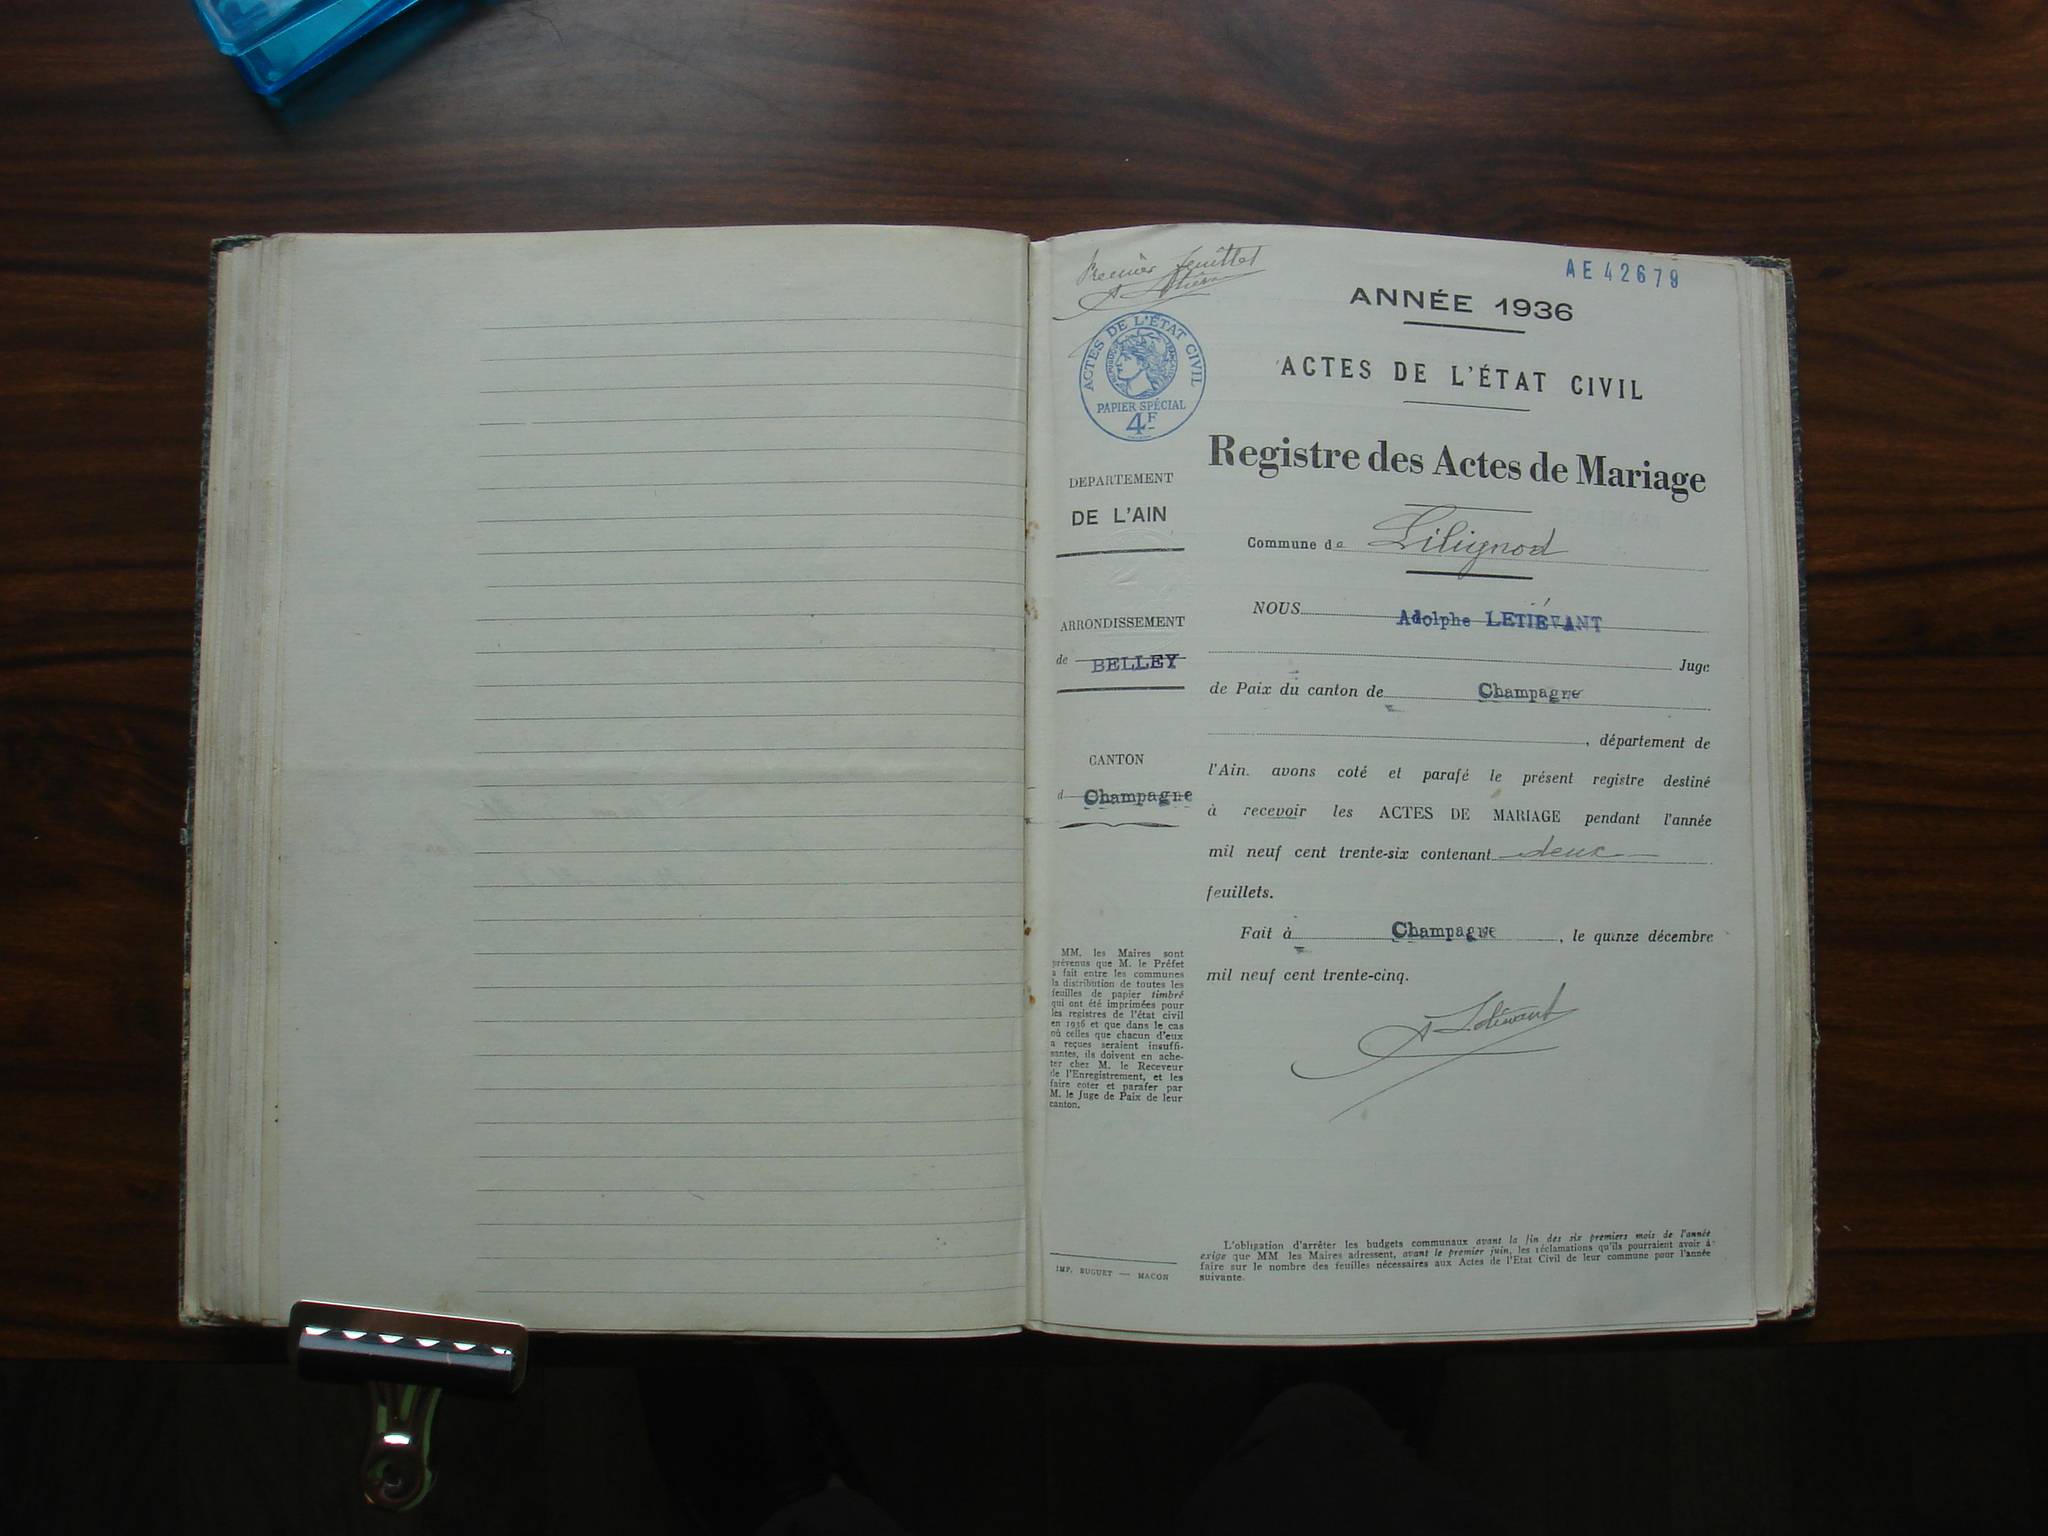 Premier feuillet
AE 42679
ANNÉE 1936
ACTES DE L'ÉTAT CIVIL
PAPIER SPÉCIAL
4F
ACTES DE L'ÉTAT CIVIL
Registre des Actes de Mariage
DEPARTEMENT
DE L'AIN
Commune de Lilignod
NOUS Adolphe LETIÉVANT
ARRONDISSEMENT
de BELLEY
Juge
de Paix du canton de Champagne
, département de
CANTON
d Champagne
l'Ain. avons coté et parafé le présent registre destiné
à recevoir les ACTES DE MARIAGE pendant l'année
mil neuf cent trente-six contenant deux
feuillets.
Fait à Champagne, le quinze décembre
mil neuf cent trente-cinq.
A Letiévant
MM. les Maires sont
prévenus que M. le Préfet
a fait entre les communes
la distribution de toutes les
feuilles de papier timbré
qui ont été imprimées pour
les registres de l'état civil
en 1936 et que dans le cas
où celles que chacun d'eux
a reçues seraient insuffi-
santes, ils doivent en ache-
ter chez M. le Receveur
de l'Enregistrement, et les
faire coter et parafer par
M. le Juge de Paix de leur
canton.
L'obligation d'arrêter les budgets communaux avant la fin des six premiers mois de l'année
exige que MM les Maires adressent, avant le premier juin, les réclamations qu'ils pourraient avoir à
faire sur le nombre des feuilles nécessaires aux Actes de l'Etat Civil de leur commune pour l'année
suivante.
IMP. BUGUET — MACON